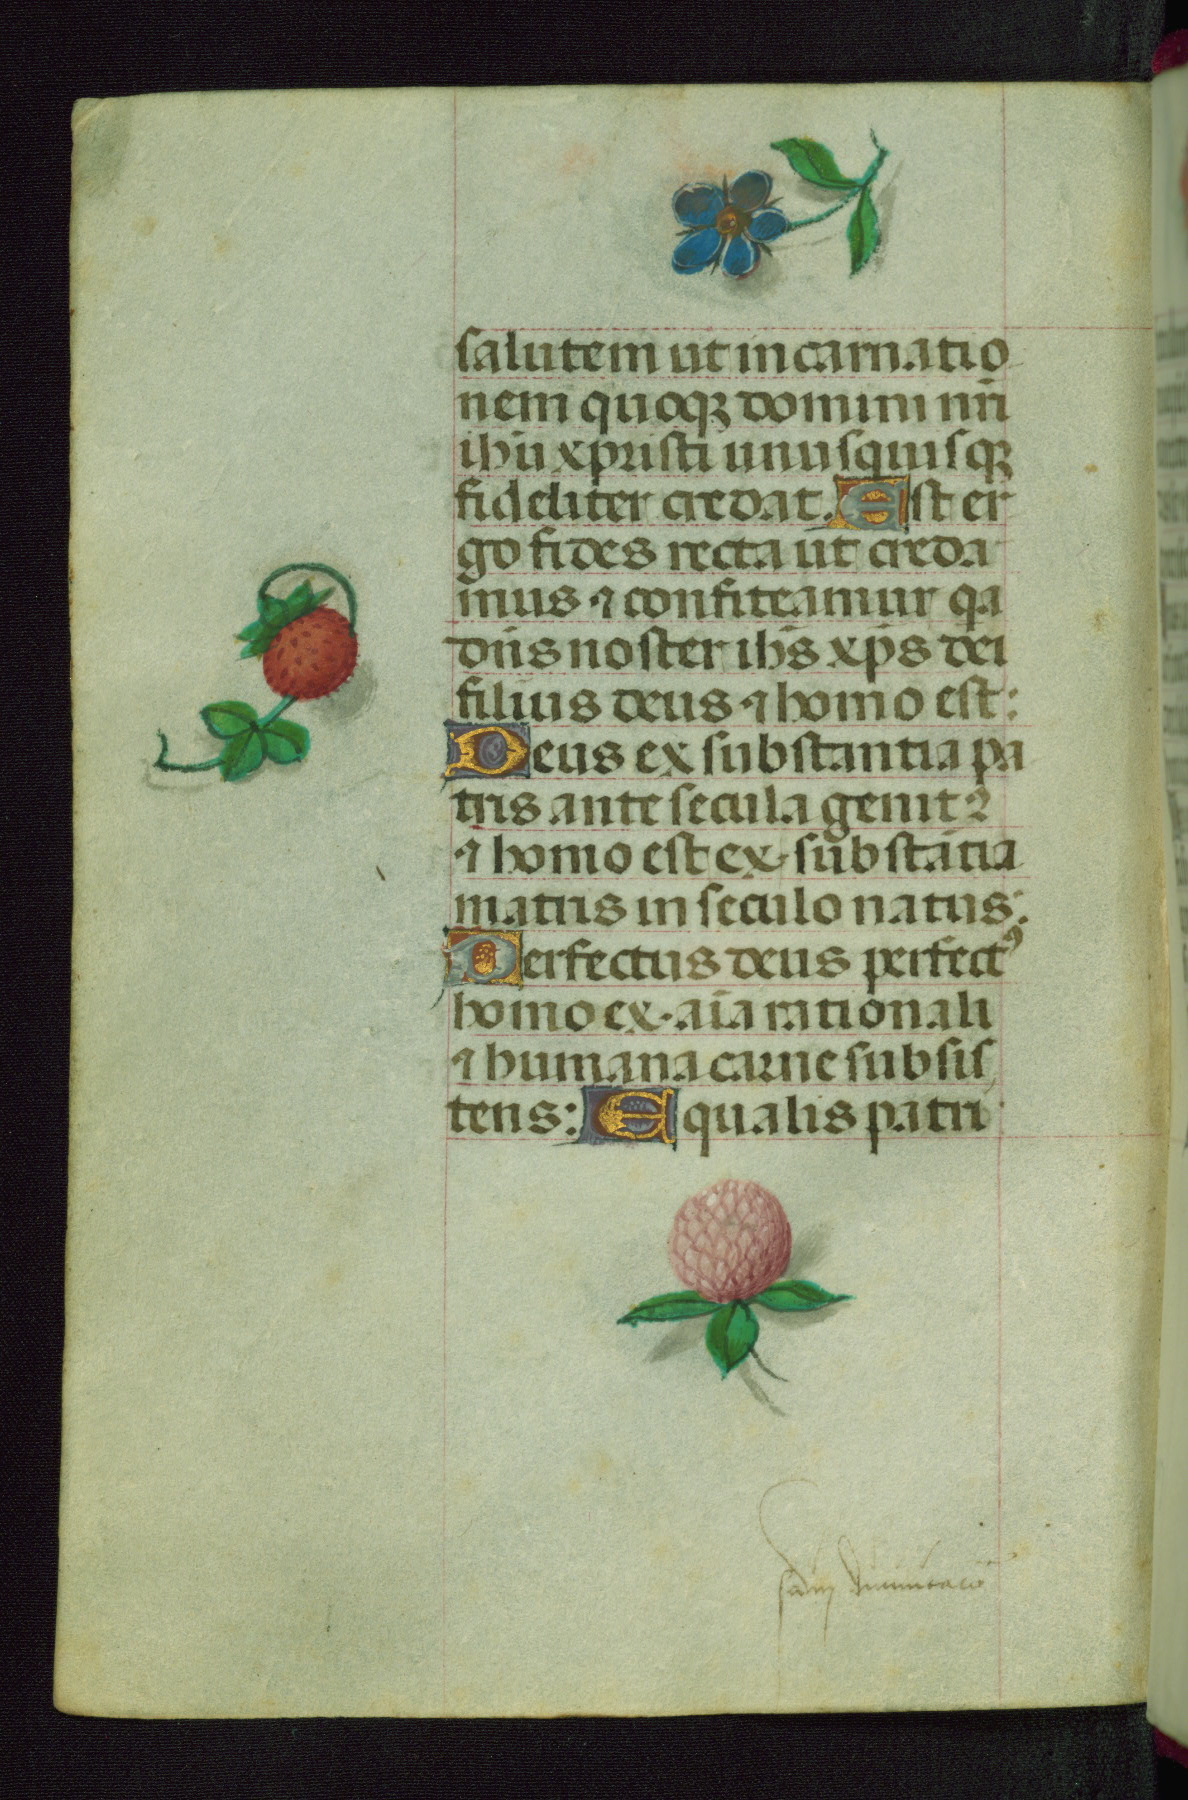 salutem ut incarnatio
nem quoqꝫ domini nr̄i
ihū xpristi unusquisqꝫ
fideliter credat. Est er
go fides recta ut creda
mus ⁊ confiteamur qa
dn̄s noster ihs̄ xps̄ dei
filius deus ⁊ homo est:
Deus ex substantia pa
tris ante secula genitꝰ
⁊ homo est ex substātia
matris in seculo natus:
Perfectus deus perfectꝰ
homo ex aīa rationali
⁊ humana carne subsis
tens: Equalis patri